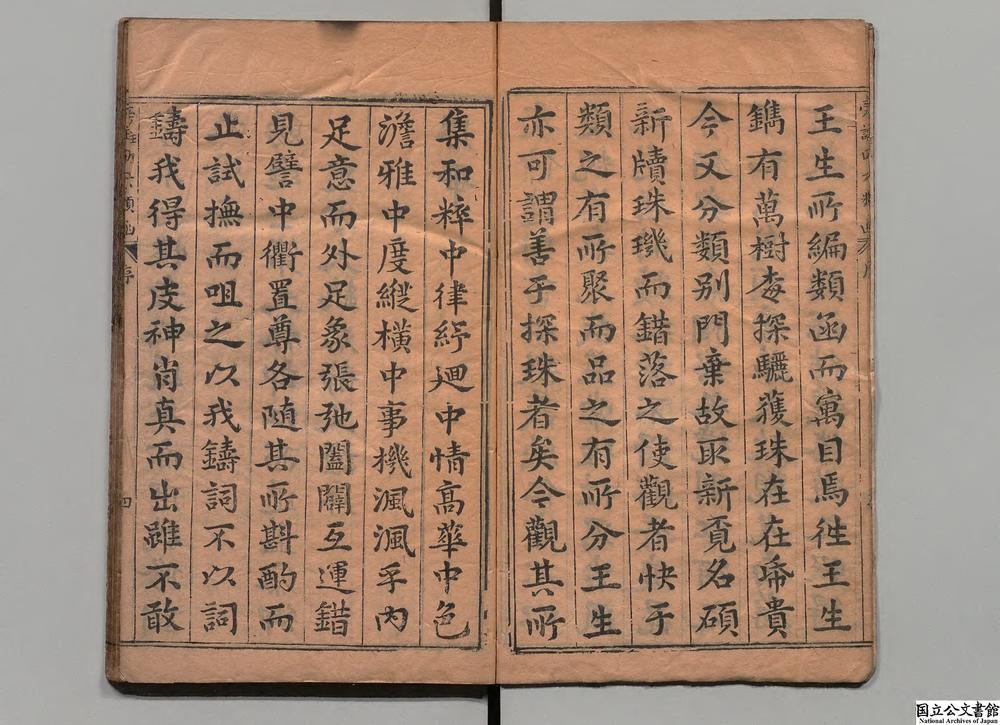 王生所編類函而寓目焉徃王生
鐫有萬樹㚞探驪獲珠在在帋貴
今又分類别門棄故取新覔名碩
新牘珠璣而錯落之使觀者快于
類之有所聚而品之有所分王生
亦可謂善乎探珠者矣今觀其所
集和粹中律紓廻中情高華中色
澹雅中度縱橫中事機渢渢乎内
足意而外足象張弛闔闢互運錯
見譬中衢置尊各隨其所斟酌而
止試撫而咀之以我鑄詞不以詞
鑄我得其皮神肖真而出雖不敢
序
四
国立公文書館
National Archives of Japan